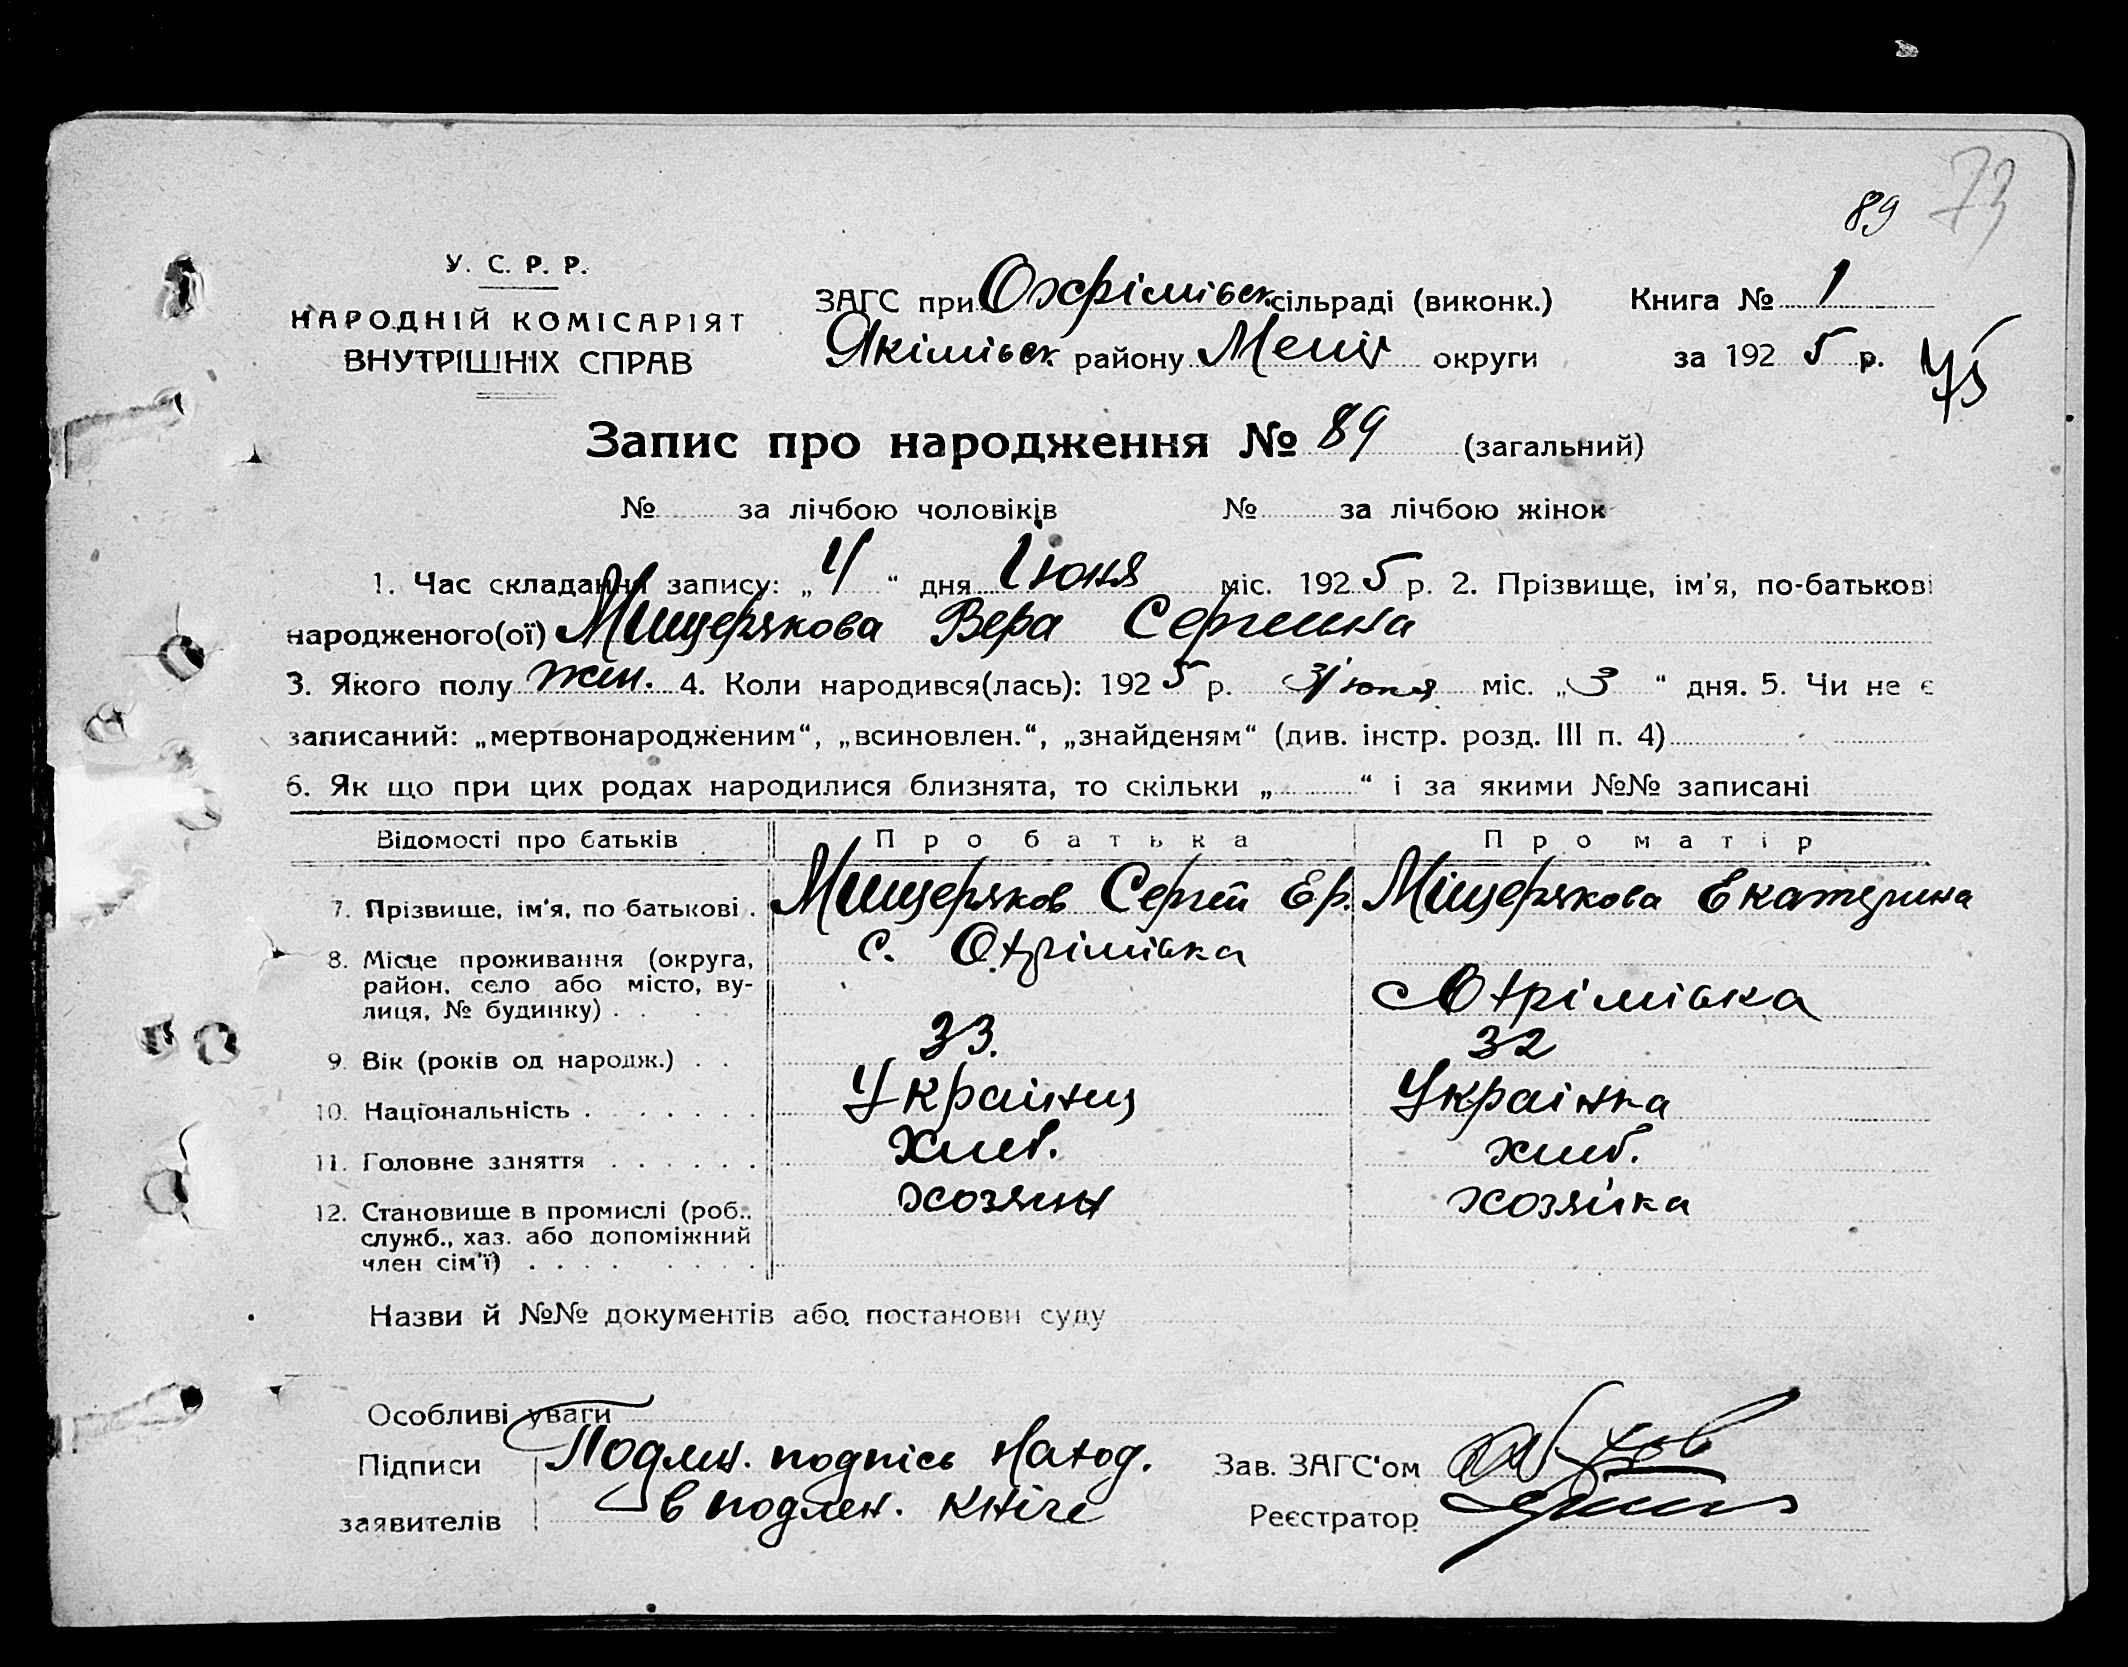 89 73
У. С. Р. Р.
НАРОДНІЙ КОМІСАРІЯТ
ВНУТРІШНІХ СПРАВ
ЗАГС при Охрімівск. сільраді (виконк.) Книга № 1
Якімівск району Меліт округи за 192 5 р. 75
Запис про народження № 89 (загальний)
№ за лічбою чоловіків № за лічбою жінок
1. Час складання запису: „ 4 “ дня Іюня міс. 192 5 р. 2. Прізвище, ім'я, по-батькові
народженого(ої) Мищерякова Вера Сергеевна
3. Якого полу жен. 4. Коли народився(лась): 192 5 р. Іюня міс. „ 3 “ дня. 5. Чи не є
записаний: „мертвонародженим“, „всиновлен.“, „знайденям“ (див. інстр. розд. III п. 4)
6. Як що при цих родах народилися близнята, то скільки „ “ і за якими №№ записані
Відомості про батьків Про батька Про матір
7. Прізвище, ім'я, по батькові . Мищеряков Сергей Ер. Міщерякова Екатерина
8. Місце проживання (округа, с. Охрімівка
район, село або місто, ву- Охрімівка
лиця, № будинку) . .
9. Вік (років од народж.) . . 33. 32
10. Національність . . . . . . . Українец Українка
11. Головне заняття . . . . . . хлеб. хлеб.
12. Становище в промислі (роб., хозяин хозяйка
служб., хаз. або допоміжний
член сім'ї) . . . . . . . .
Назви й №№ документів або постанови суду
Особливі уваги
Підписи Подлин. подпісь наход. Зав. ЗАГС'ом
заявителів в подлен. кніге Реєстратор